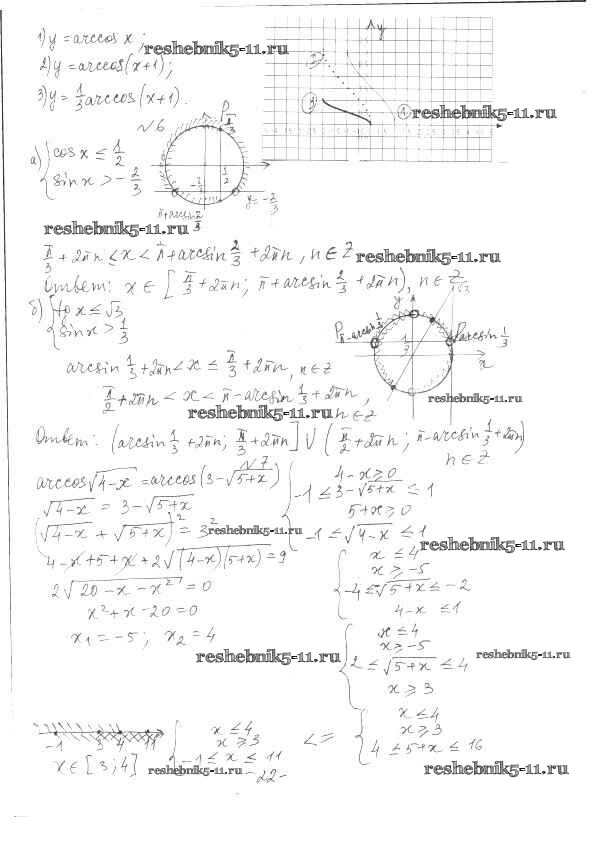 1) y = arccos x;
reshebnik5-11.ru
2) y = arccos(x+1);
3) y = 1/3 arccos(x+1).
y
2
3
1
reshebnik5-11.ru
№6
P π/3
а) { cos x ≤ 1/2
sin x > -2/3
-2/3
1/2
y = -2/3
π + arcsin 2/3
reshebnik5-11.ru
π/3 + 2πn ≤ x < π + arcsin 2/3 + 2πn, n ∈ Z
reshebnik5-11.ru
Ответ: x ∈ [π/3 + 2πn; π + arcsin 2/3 + 2πn), n ∈ Z
б) { tg x ≤ √3
sin x > 1/3
y
P π-arcsin 1/3
P arcsin 1/3
1/3
x
arcsin 1/3 + 2πn < x ≤ π/3 + 2πn, n ∈ Z
π/2 + 2πn < x < π - arcsin 1/3 + 2πn,
n ∈ Z
reshebnik5-11.ru
reshebnik5-11.ru
Ответ: (arcsin 1/3 + 2πn; π/3 + 2πn] ∪ (π/2 + 2πn; π - arcsin 1/3 + 2πn)
n ∈ Z
№7
arccos √4-x = arccos(3 - √5+x)
√4-x = 3 - √5+x
(√4-x + √5+x)² = 3²
reshebnik5-11.ru
4-x+5+x+2√(4-x)(5+x) = 9
2√20-x-x² = 0
x²+x-20 = 0
x₁ = -5; x₂ = 4
4-x ≥ 0
-1 ≤ 3-√5+x ≤ 1
5+x ≥ 0
-1 ≤ √4-x ≤ 1
reshebnik5-11.ru
x ≤ 4
x ≥ -5
-4 ≤ -√5+x ≤ -2
4-x ≤ 1
reshebnik5-11.ru
x ≤ 4
x ≥ -5
2 ≤ √5+x ≤ 4
x ≥ 3
reshebnik5-11.ru
x ≤ 4
x ≥ 3
4 ≤ 5+x ≤ 16
<=
x ≤ 4
x ≥ 3
-1 ≤ x ≤ 11
-1 3 4 11
x ∈ [3; 4]
reshebnik5-11.ru
-22-
reshebnik5-11.ru